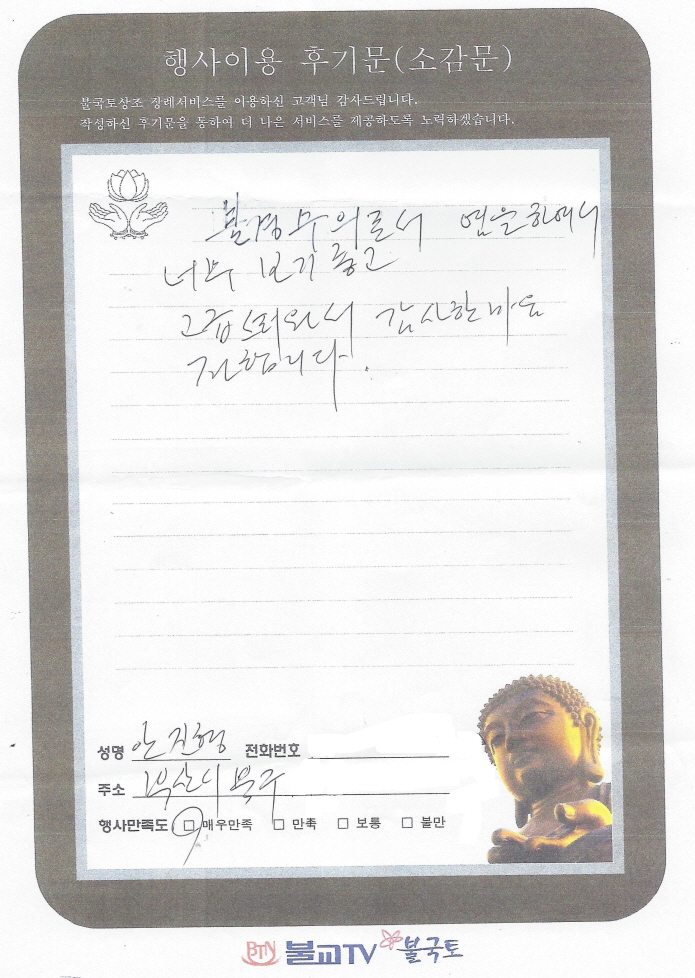 행사이용 후기문(소감문)
불국토상조 장례서비스를 이용하신 고객님 감사드립니다.
작성하신 후기문을 통하여 더 나은 서비스를 제공하도록 노력하겠습니다.
불경수의로서 염을 하여서
너무 보기 좋고
고급스러워서 감사한 마음
전합니다.
성명 안진형 전화번호
주소 부산시 북구
행사만족도 □ 매우만족 □ 만족 □ 보통 □ 불만
BTN 불교TV 불국토